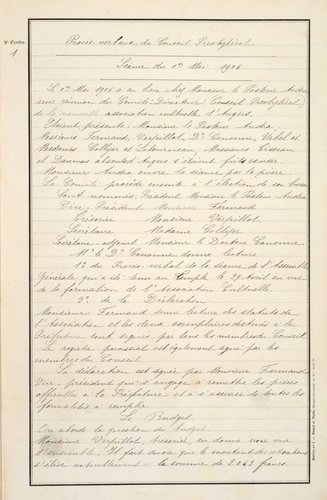 Nos d'ordre
1
Procès verbaux du Conseil Presbytéral.
Séance du 1er Mai 1906
Le 1er Mai 1906 a eu lieu chez Monsieur le Pasteur Audra
une réunion du Comité-Directeur (Conseil Presbytéral)
de la nouvelle association cultuelle d'Angers.
Etaient présents: Monsieur le Pasteur Audra
Messieurs Fermaud, Verpillot, Dr Canonne, Vebel et
Mesdames Collyer et Letourneau. Messieurs
et absents d'Angers s'étaient fait excuser
Monsieur Audra ouvre la séance par la prière.
Le Comité procède ensuite à l'élection de son bureau
Sont nommés: Président Monsieur le Pasteur Audra
Vice-Président Monsieur Fermaud
Trésorier Monsieur Verpillot
Secrétaire Madame Collyer
Secrétaire-adjoint Monsieur le Docteur Canonne.
Mr le Dr Canonne donne lecture
1o du Procès verbal de la séance de l'Assemblée
Générale qui a été tenue au Temple le 29 avril en vue
de la formation de l'Association Cultuelle.
2o de la Déclaration
Monsieur Fermaud donne lecture des statuts de
l'Association et les deux exemplaires destinés à la
Préfecture sont signés par tous les membres du Conseil.
Le registre paroissial est également signé par les
membres du Conseil.
La déclaration est signée par Monsieur Fermaud
Vice-président qui s'engage à remettre les pièces
officielles à la Préfecture et à s'assurer de toutes les
formalités à remplir.
Le Budget.
On aborde la question du budget.
Monsieur Verpillot, trésorier, en donne une vue
d'ensemble. Il fait savoir que le montant des cotisations
s'élève actuellement à la somme de 3.043 francs.